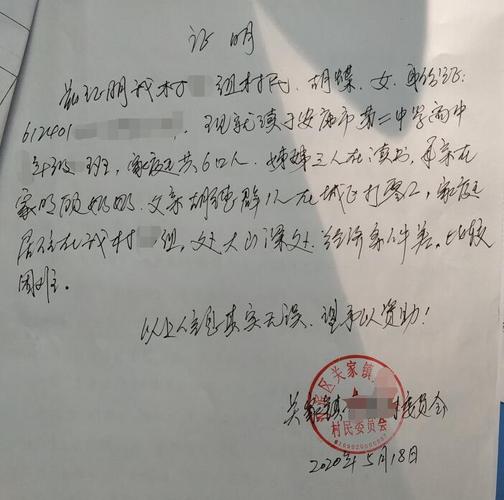 证明
兹证明我村 组村民，胡蝶，女，身份证：
612401 ，现就读于安康市第二中学高中
年级 班，家庭共6口人，姊妹三人在读书，母亲在
家照顾奶奶，父亲胡 一人在城上打零工，家庭
居住在我村 组，处大山深处，经济条件差，比较
困难。
以上信息真实无误，望予以资助！
关家镇 村委会
区关家镇
村民委员会
2020年5月18日